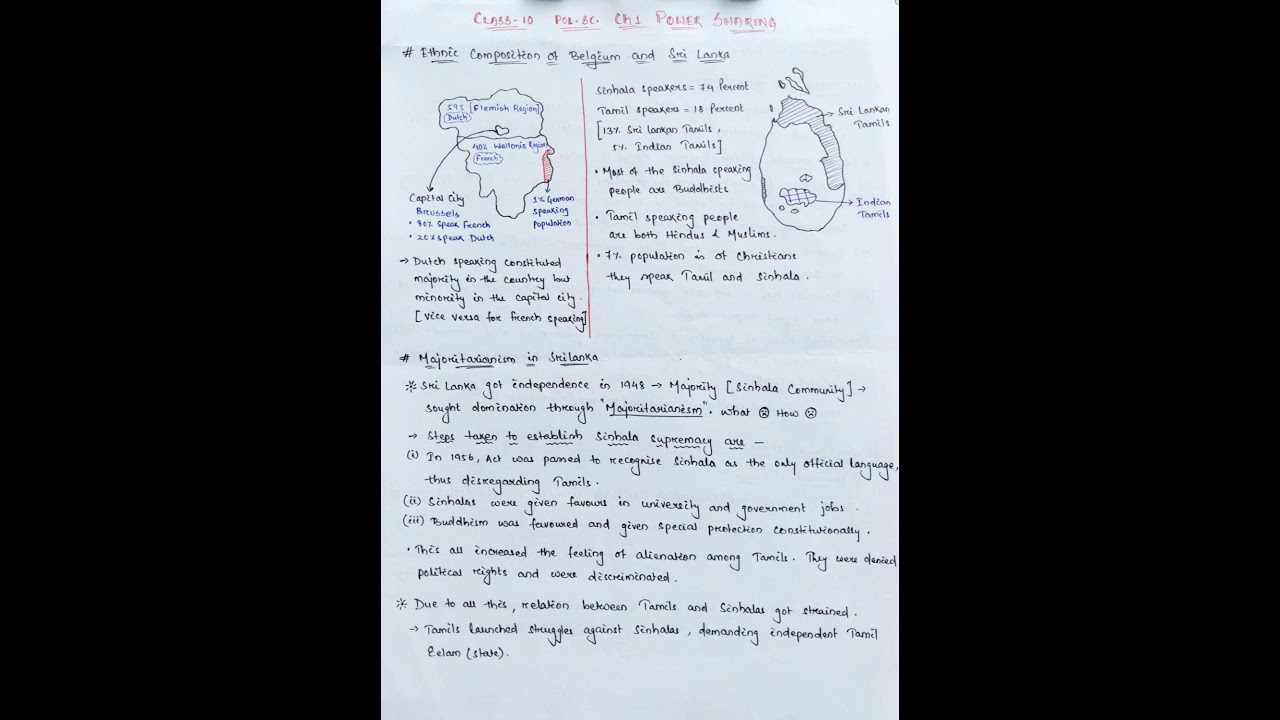 CLASS-10 POL.SC. Ch1 POWER SHARING
# Ethnic Composition of Belgium and Sri Lanka
59% [Flemish Region]
Dutch
40% Wallonia Region
French
Capital City
Brussels
• 80% speak French
• 20% speak Dutch
1% German
speaking
population
→ Dutch speaking constituted
majority in the country but
minority in the capital city.
[Vice versa for French speaking]
Sinhala speakers = 74 Percent
Tamil speakers = 18 Percent
[13% Sri Lankan Tamils,
5% Indian Tamils]
• Most of the Sinhala speaking
people are Buddhists
• Tamil speaking people
are both Hindus & Muslims.
• 7% population is of Christians
they speak Tamil and Sinhala.
Sri Lankan
Tamils
Indian
Tamils
# Majoritarianism in Sri Lanka
* Sri Lanka got independence in 1948 → Majority [Sinhala Community] →
sought domination through "Majoritarianism". What ☹ How ☹
→ Steps taken to establish Sinhala supremacy are —
(i) In 1956, Act was passed to recognise Sinhala as the only official language,
thus disregarding Tamils.
(ii) Sinhalas were given favours in university and government jobs.
(iii) Buddhism was favoured and given special protection constitutionally.
• This all increased the feeling of alienation among Tamils. They were denied
political rights and were discriminated.
* Due to all this, relation between Tamils and Sinhalas got strained.
→ Tamils launched struggles against Sinhalas, demanding independent Tamil
Eelam (state).